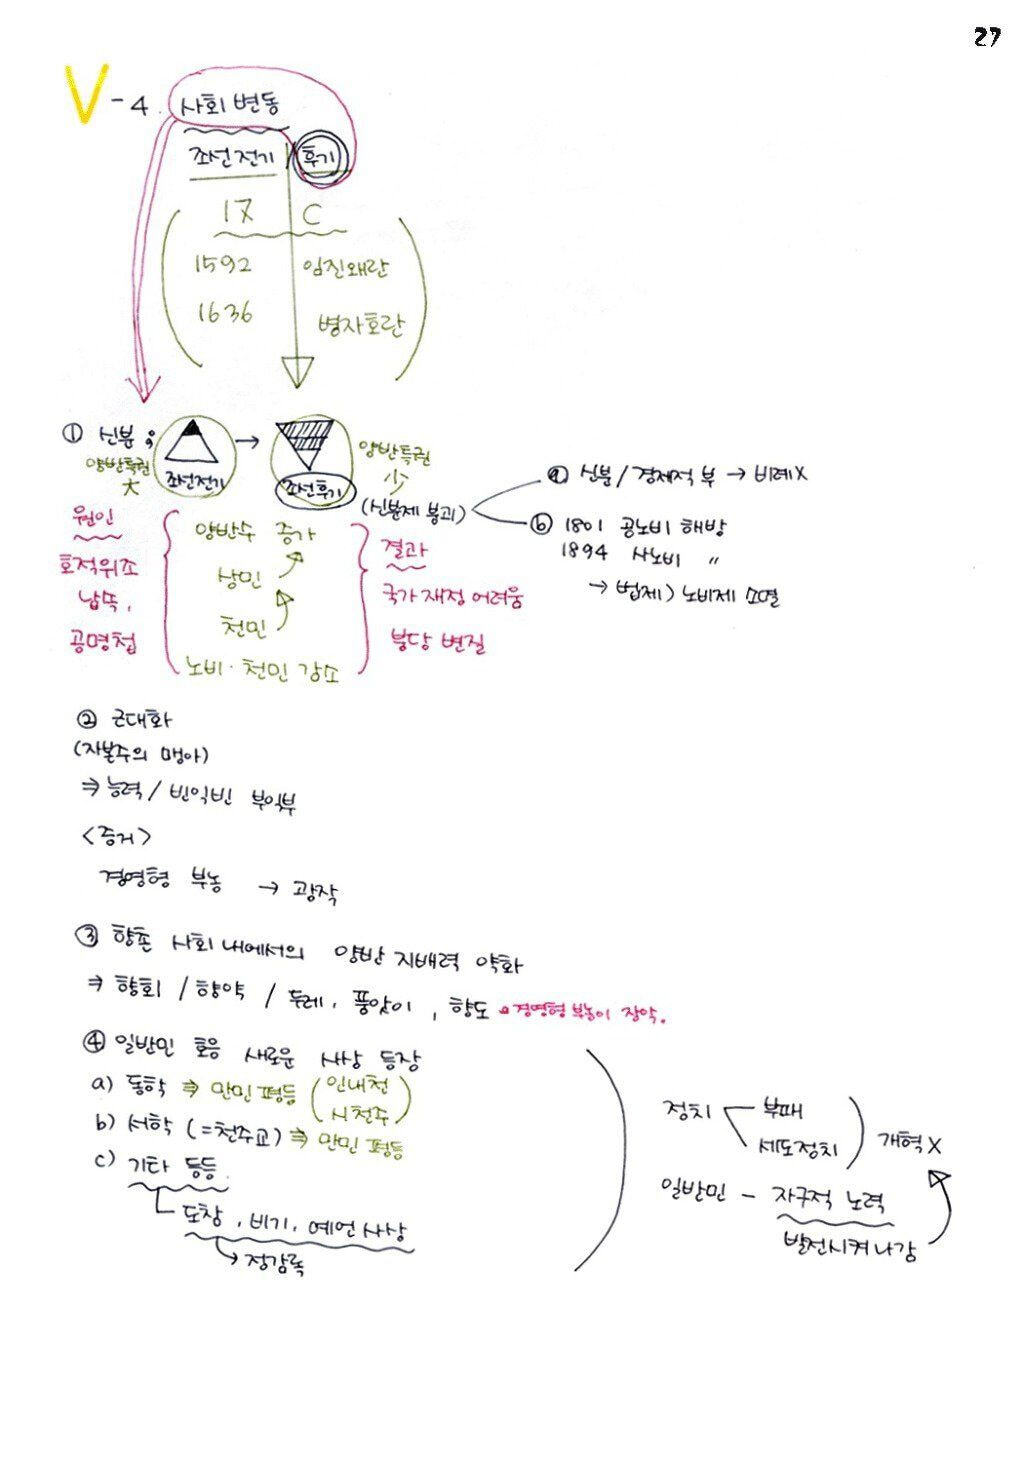 27
V - 4. 사회 변동
조선전기 후기
17 C
1592 임진왜란
1636 병자호란
① 신분 ;
양반특권
大
조선전기
→
조선후기
양반특권
少
(신분제 붕괴)
ⓐ 신분/경제적 부 → 비례X
ⓑ 1801 공노비 해방
1894 사노비 〃
→ 법제) 노비제 소멸
원인
호적위조
납속,
공명첩
양반수 증가
상민
천민
노비·천민 감소
결과
국가재정 어려움
붕당 변질
② 근대화
(자본주의 맹아)
⇒ 능력/빈익빈 부익부
<증거>
경영형 부농 → 광작
③ 향촌 사회 내에서의 양반 지배력 약화
⇒ 향회 / 향약 / 두레, 품앗이, 향도 경영형 부농이 장악.
④ 일반민 호응 새로운 사상 등장
a) 동학 ⇒ 만민 평등 (인내천
시천주)
b) 서학 (=천주교) ⇒ 만민 평등
c) 기타 등등.
도참, 비기, 예언사상
→ 정감록
정치 부패
세도정치
개혁 X
일반민 - 자구적 노력
발전시켜 나감